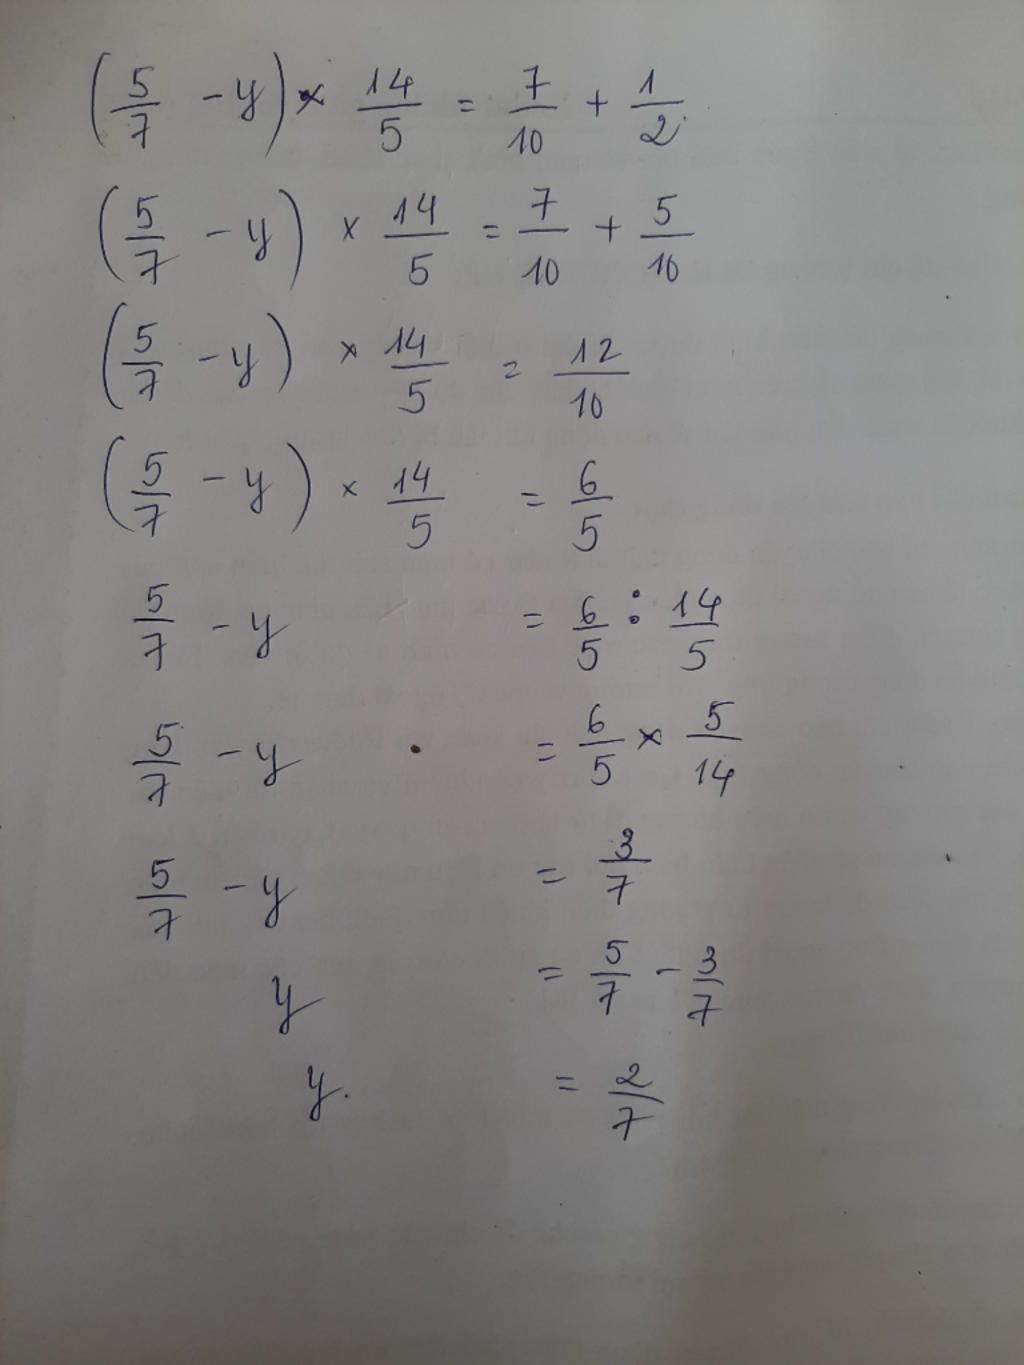 (5/7 - y) × 14/5 = 7/10 + 1/2
(5/7 - y) × 14/5 = 7/10 + 5/10
(5/7 - y) × 14/5 = 12/10
(5/7 - y) × 14/5 = 6/5
5/7 - y = 6/5 : 14/5
5/7 - y = 6/5 × 5/14
5/7 - y = 3/7
y = 5/7 - 3/7
y. = 2/7